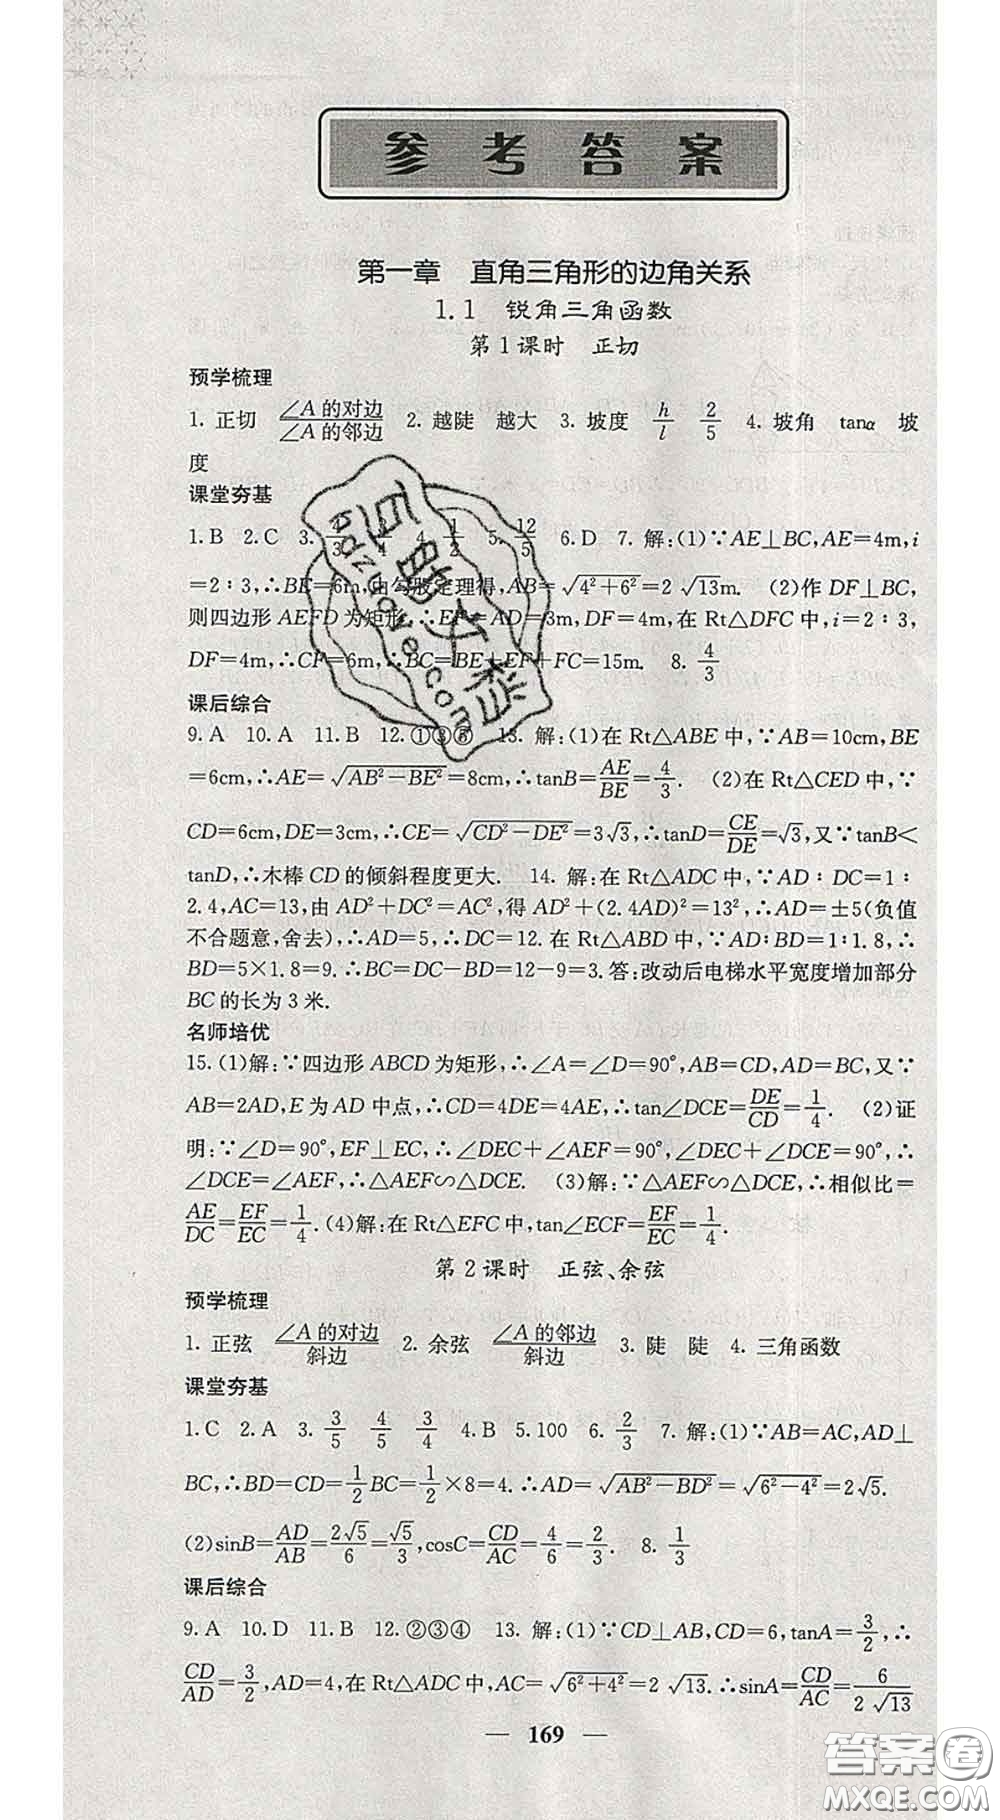 参考答案
第一章 直角三角形的边角关系
1.1 锐角三角函数
第1课时 正切
预学梳理
1. 正切 ∠A的对边/∠A的邻边 2. 越陡 越大 3. 坡度 h/l 2/5 4. 坡角 tanα 坡
度
课堂夯基
1.B 2.C 3. 4. 1/2 5. 12/5 6.D 7. 解:(1)∵AE⊥BC,AE=4m,i
=2∶3,∴BE=6m,由勾股定理得,AB=√(4²+6²)=2√13m. (2)作DF⊥BC,
则四边形AEFD为矩形,∴EF=AD=3m,DF=4m,在Rt△DFC中,i=2∶3,
DF=4m,∴CF=6m,∴BC=BE+EF+FC=15m. 8. 4/3
课后综合
9.A 10.A 11.B 12.①③⑤ 13. 解:(1)在Rt△ABE中,∵AB=10cm,BE
=6cm,∴AE=√(AB²-BE²)=8cm,∴tanB=AE/BE=4/3. (2)在Rt△CED中,∵
CD=6cm,DE=3cm,∴CE=√(CD²-DE²)=3√3,∴tanD=CE/DE=√3,又∵tanB<
tanD,∴木棒CD的倾斜程度更大. 14. 解:在Rt△ADC中,∵AD∶DC=1∶
2.4,AC=13,由AD²+DC²=AC²,得AD²+(2.4AD)²=13²,∴AD=±5(负值
不合题意,舍去),∴AD=5,∴DC=12.在Rt△ABD中,∵AD∶BD=1∶1.8,∴
BD=5×1.8=9.∴BC=DC-BD=12-9=3.答:改动后电梯水平宽度增加部分
BC的长为3米.
名师培优
15.(1)解:∵四边形ABCD为矩形,∴∠A=∠D=90°,AB=CD,AD=BC,又∵
AB=2AD,E为AD中点,∴CD=4DE=4AE,∴tan∠DCE=DE/CD=1/4. (2)证
明:∵∠D=90°,EF⊥EC,∴∠DEC+∠AEF=90°,∠DEC+∠DCE=90°,∴
∠DCE=∠AEF,∴△AEF∽△DCE. (3)解:∵△AEF∽△DCE,∴相似比=
AE/DC=EF/EC=1/4.(4)解:在Rt△EFC中,tan∠ECF=EF/EC=1/4.
第2课时 正弦、余弦
预学梳理
1. 正弦 ∠A的对边/斜边 2. 余弦 ∠A的邻边/斜边 3. 陡 陡 4. 三角函数
课堂夯基
1.C 2.A 3. 3/5 4/5 3/4 4.B 5.100 6. 2/3 7. 解:(1)∵AB=AC,AD⊥
BC,∴BD=CD=1/2BC=1/2×8=4.∴AD=√(AB²-BD²)=√(6²-4²)=2√5.
(2)sinB=AD/AB=2√5/6=√5/3,cosC=CD/AC=4/6=2/3. 8. 1/3
课后综合
9.A 10.D 11.B 12.②③④ 13. 解:(1)∵CD⊥AB,CD=6,tanA=3/2,∴
CD/AD=3/2,AD=4,在Rt△ADC中,AC=√(6²+4²)=2√13.∴sinA=CD/AC=6/2√13
— 169 —
百敏文档
bdzuowe.com
答案圈
MXQE.COM